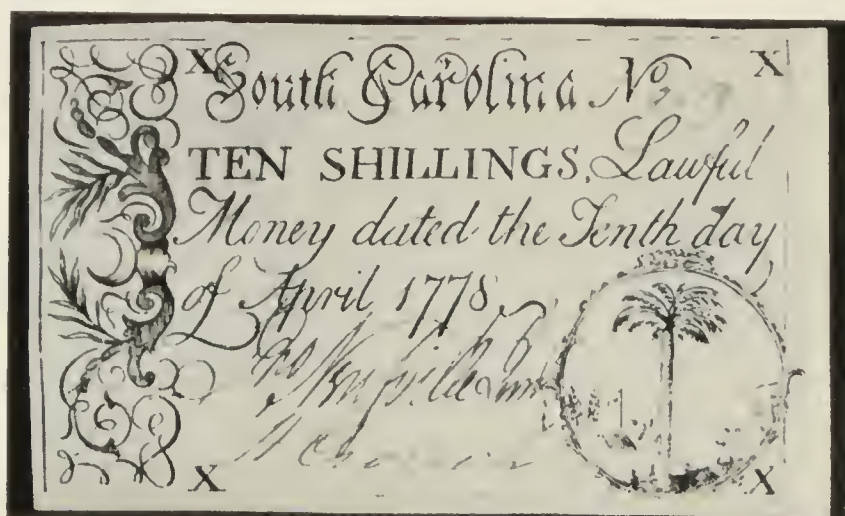 X South Carolina No. X
TEN SHILLINGS, Lawful
Money dated the Tenth day
of April 1778
X X